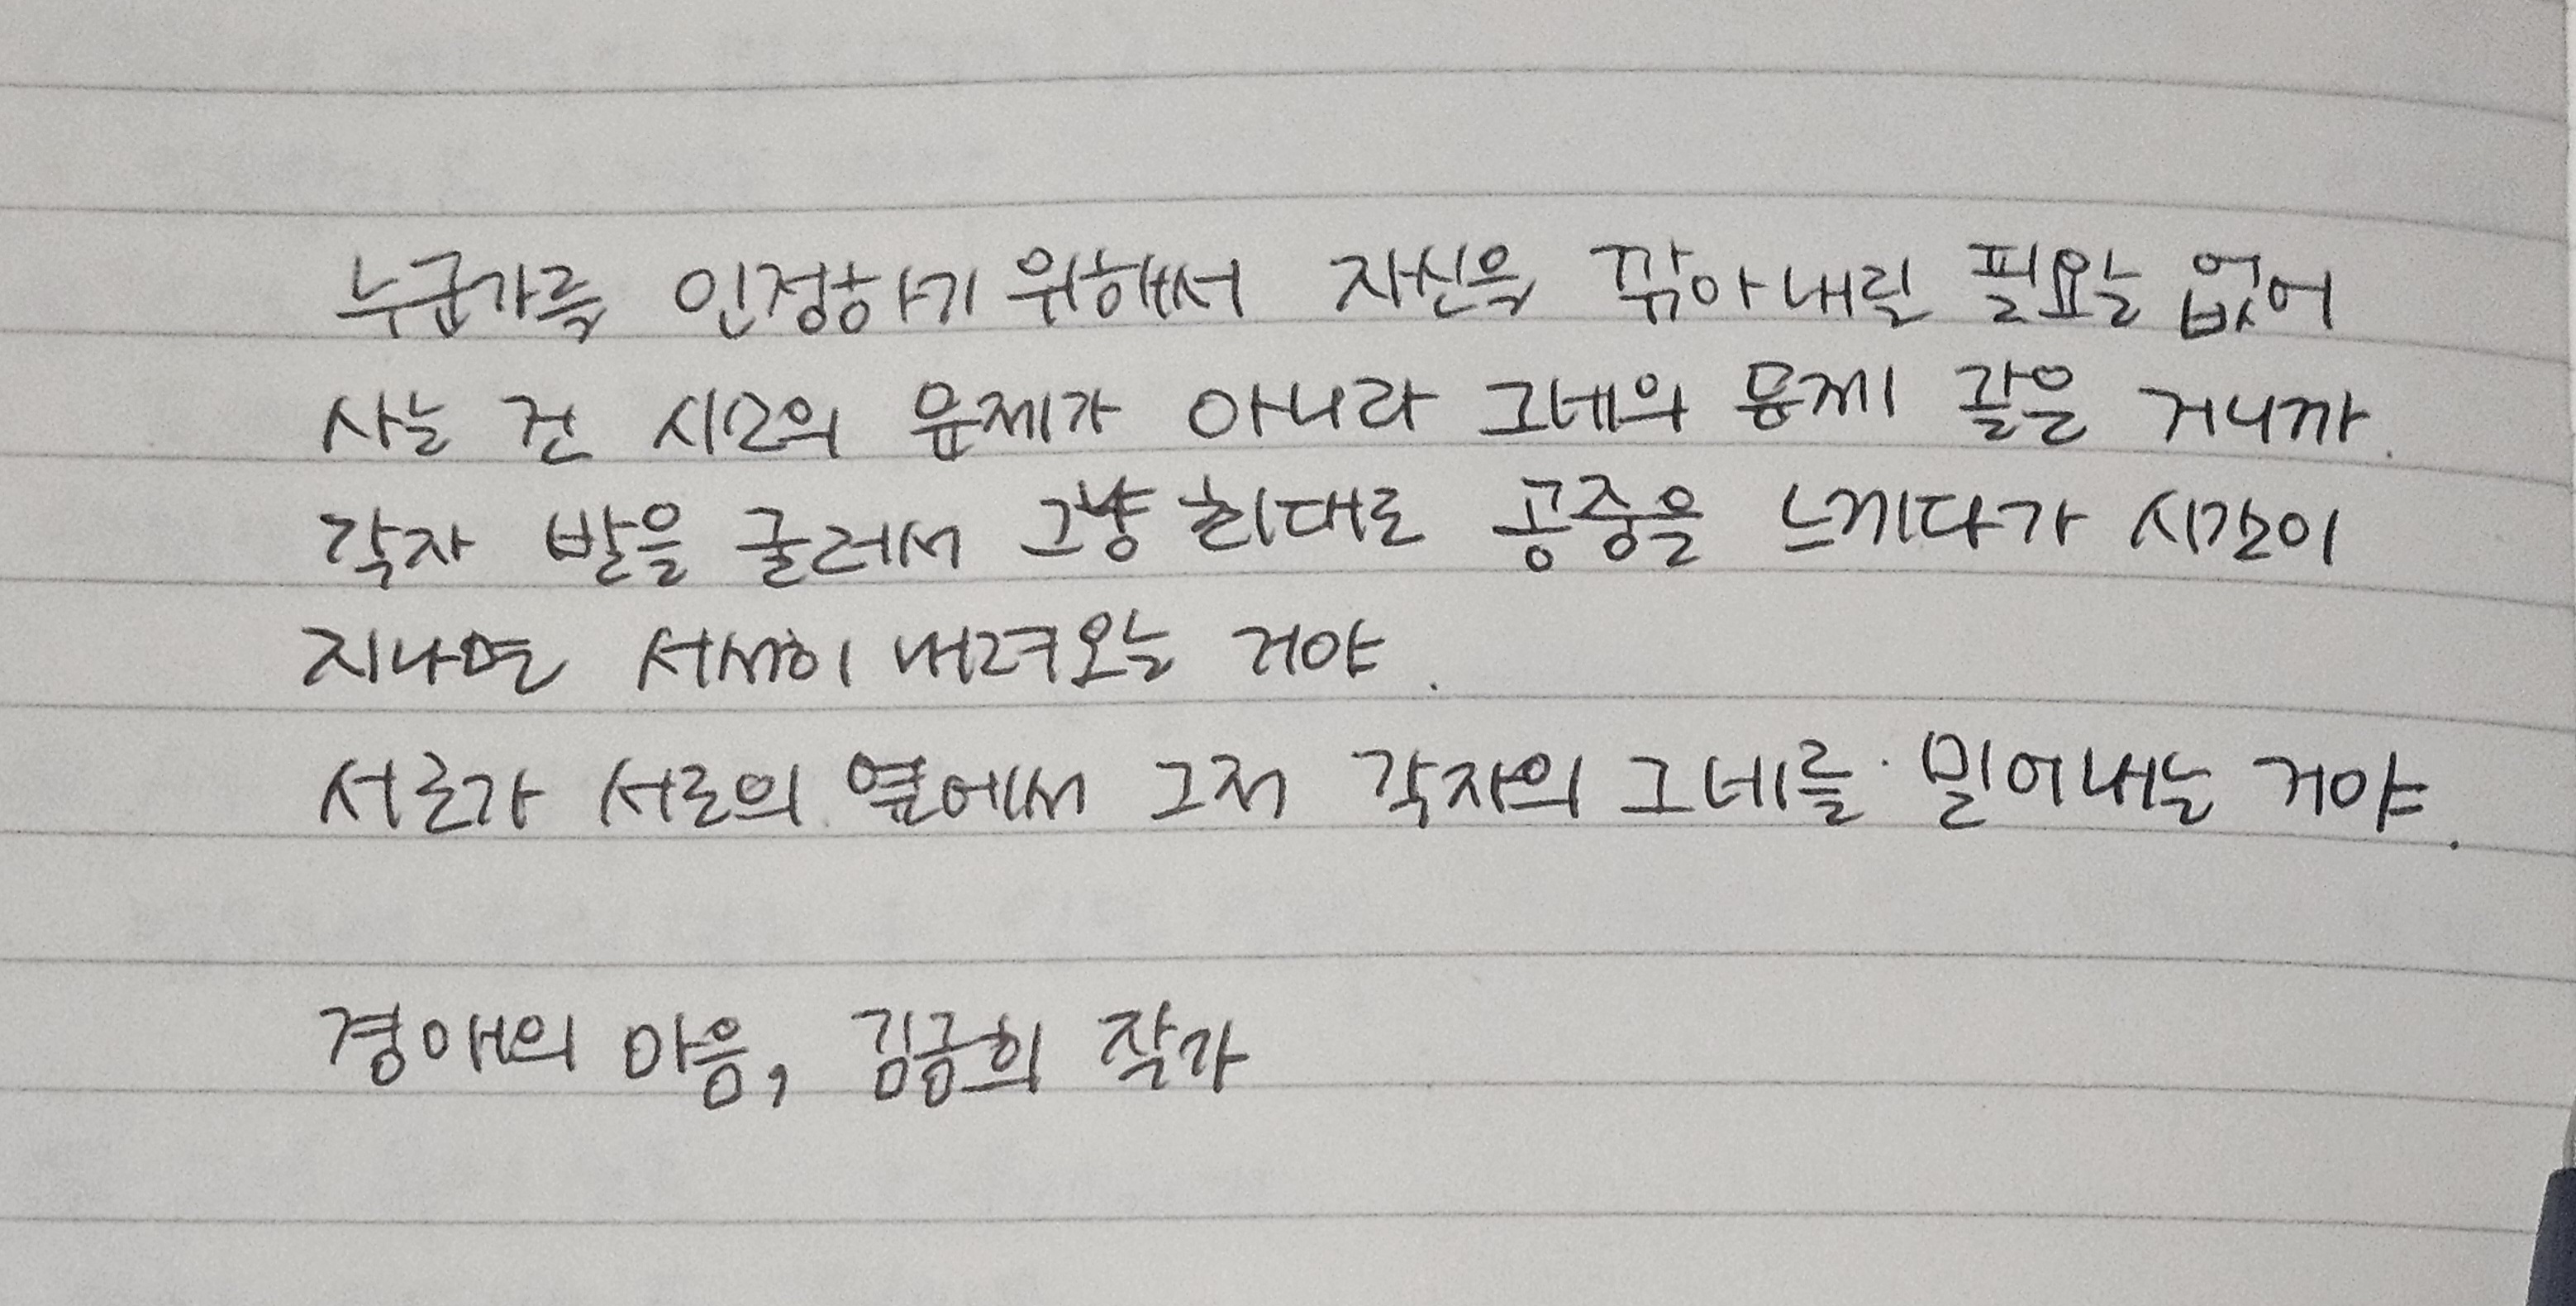 누군가를 인정하기 위해서 자신을 깎아내릴 필요는 없어
사는 건 시소의 문제가 아니라 그네의 문제 같은 거니까.
각자 발을 굴러서 그냥 최대로 공중을 느끼다가 시간이
지나면 서서히 내려오는 거야.
서로가 서로의 옆에서 그저 각자의 그네를 밀어내는 거야.
경애의 마음, 김금희 작가